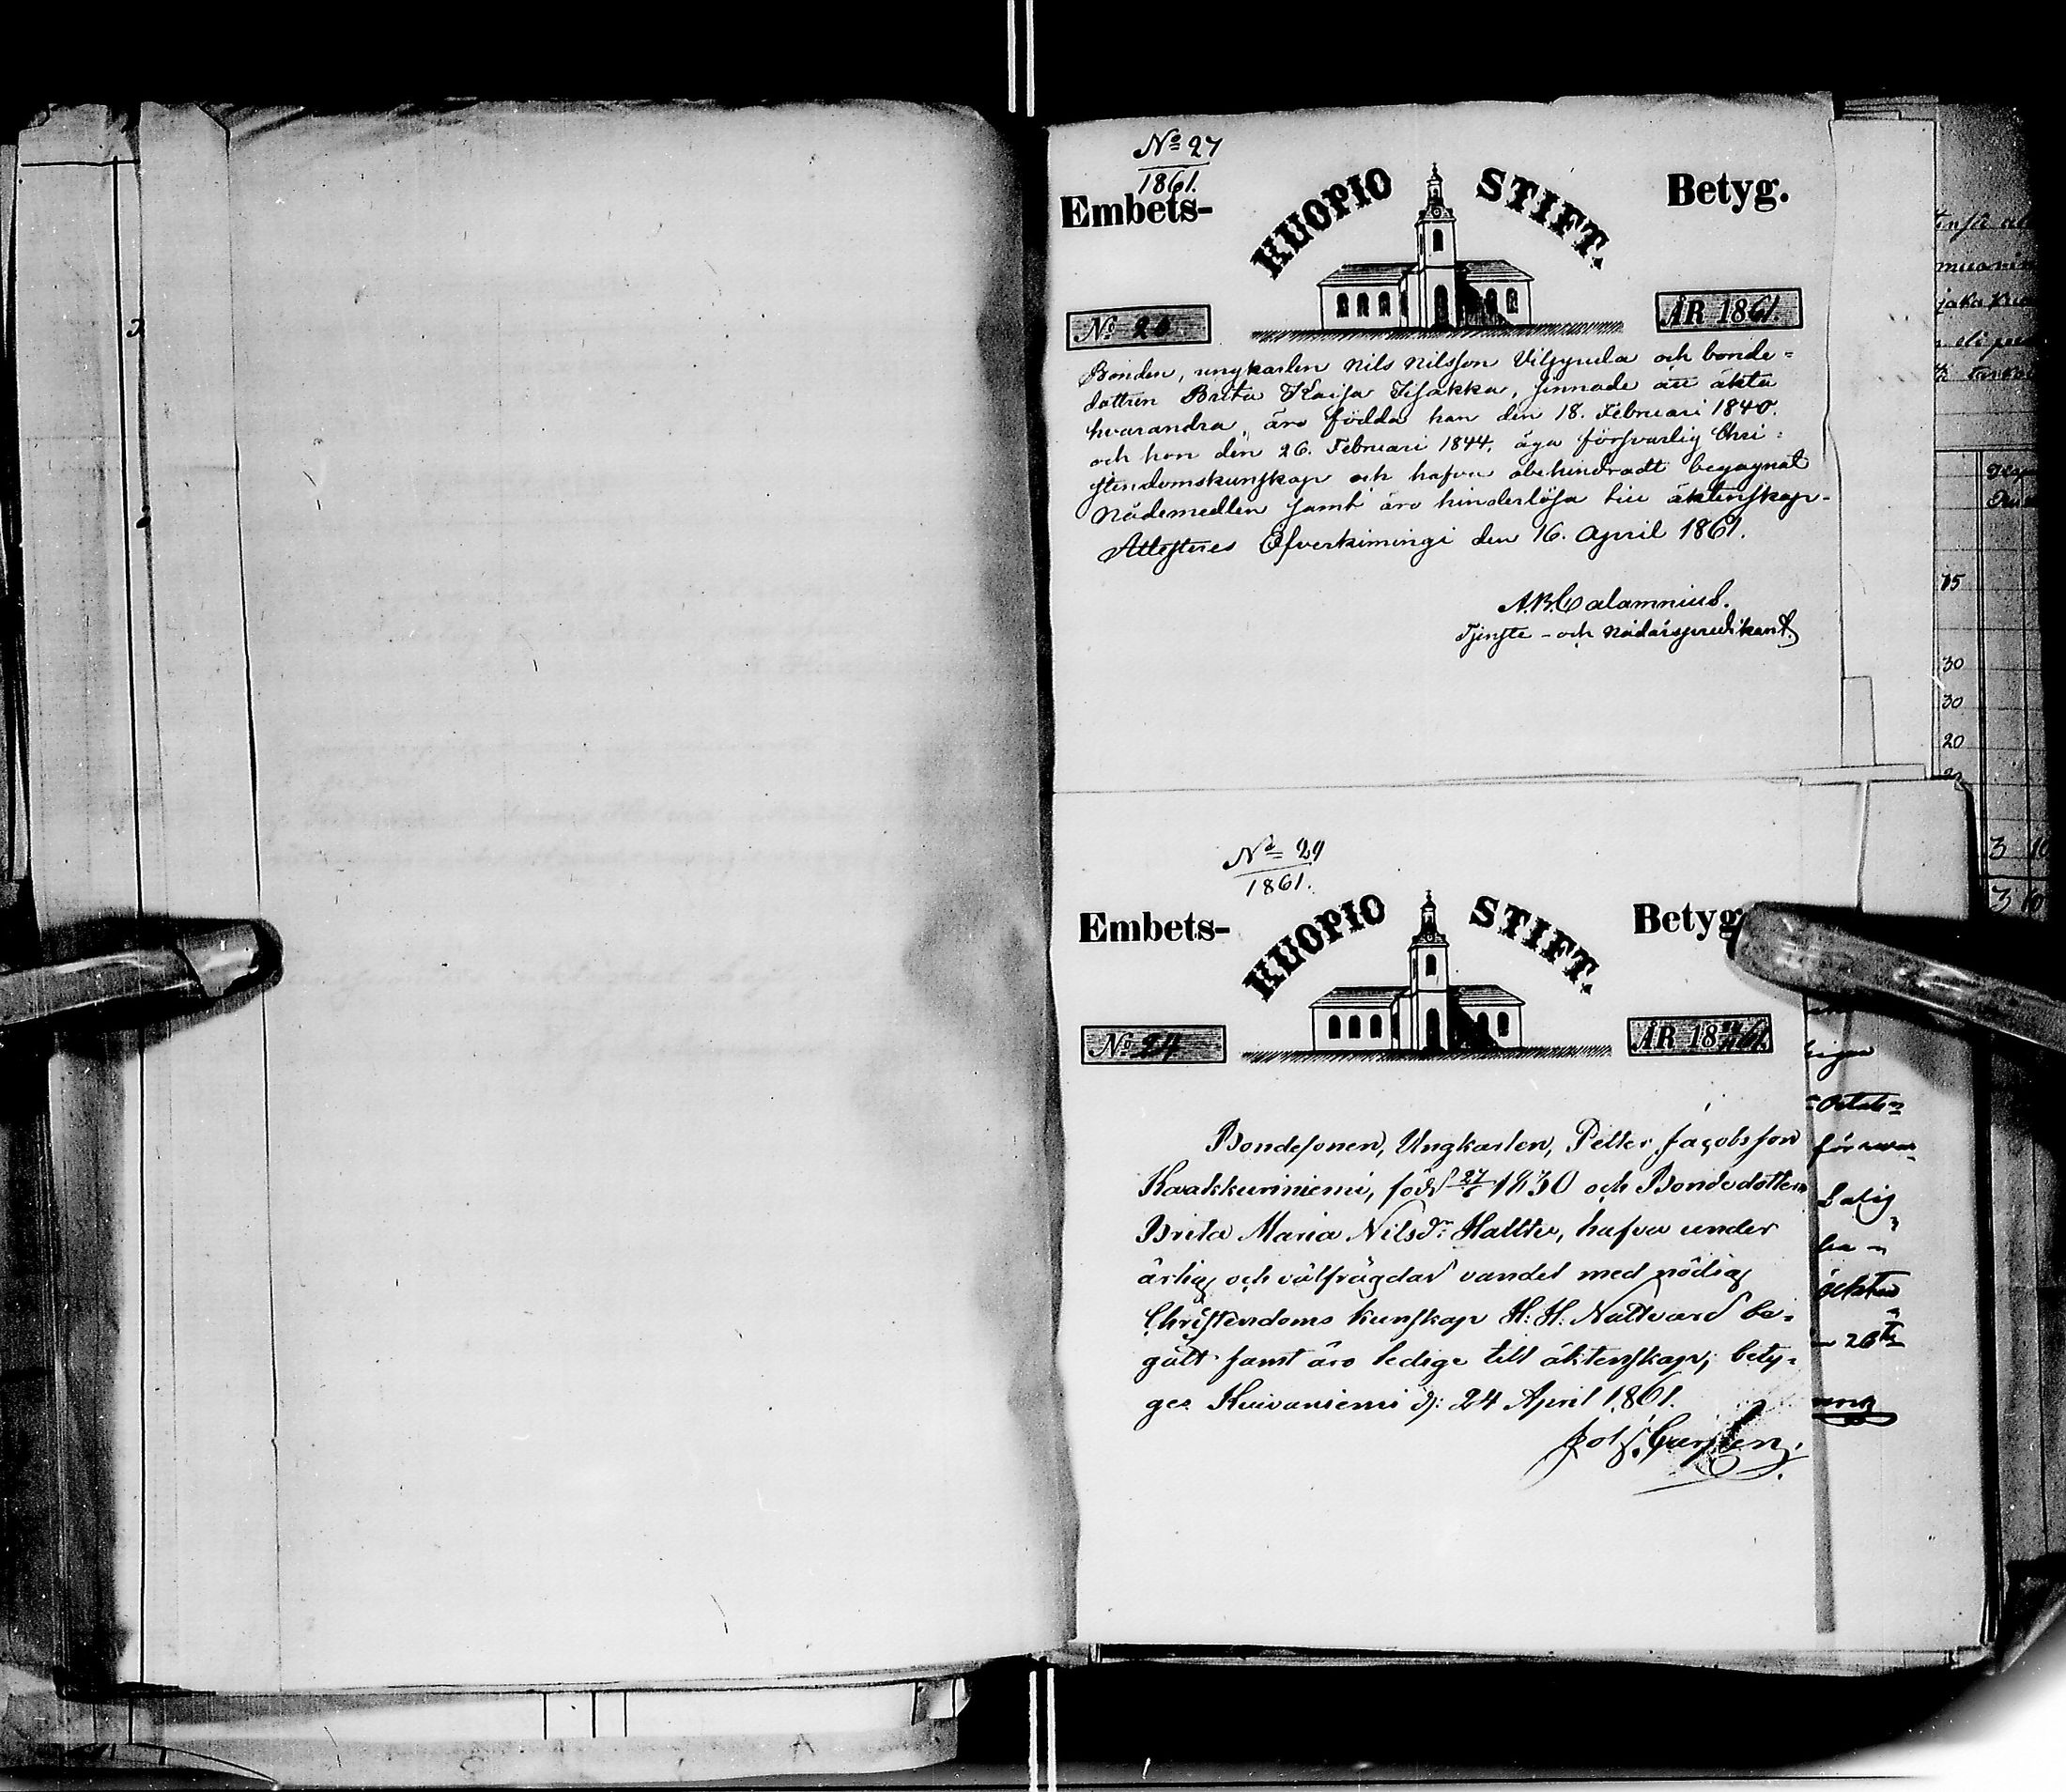 No 27
1861.
Embets- KUOPIO STIFT. Betyg.
No 20 ÅR 1861
Bonden, ungkarlen Nils Nilsson och bonde=
dottren Brita Kaisa, sinnade att äkta
hvarandra, äro födda han den 18. Februari 1840.
och hon den 26. Februari 1844, äga försvarlig Chri=
stendomskunskap och hafva obehindradt begagnat
Nådemedlen samt äro hinderlösa till äktenskap.
Attesteres Öfverkimingi den 16. April 1861.
A.B. Calamnius.
Tjenste- och Nådårspredikant.
No 29
1861.
Embets- KUOPIO STIFT. Betyg
No 24 ÅR 18
Bondesonen, Ungkarlen, Petter Jacobsson
Kaakkuriniemi, född 1830 och Bondedottern
Brita Maria Nilsdr Hallte, hafva under
ärlig och välfrägdad vandel med nödig
Christendoms kunskap H: H: Nattvard be=
gått samt äro ledige till äktenskap; bety=
ges Kuivaniemi d: 24 April 1861.
15
30
30
20
3 10
3 10